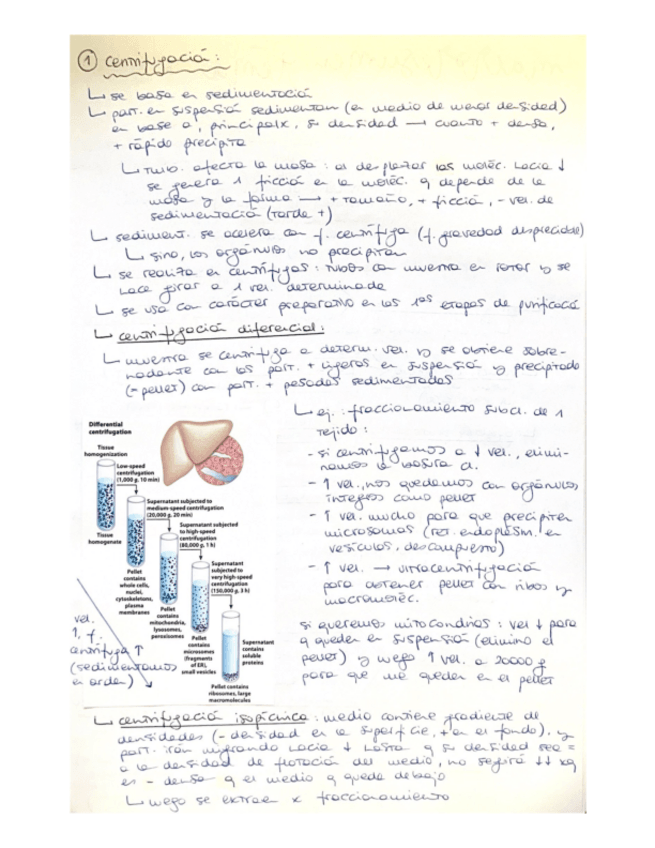 ① Centrifugació:
↳ se basa en sedimentació
↳ part. en suspensió sedimentan (en medio de menor densidad)
en base a, principalx, su densidad → cuanto + densa,
+ rápido precipita
↳ Tmb. afecta la masa: al desplazar las moléc. hacia ↓
se genera 1 ficció en la moléc. q depende de la
masa y la forma → + tamaño, + ficció, - vel. de
sedimentació (tarda +)
↳ sediment. se acelera con f. centrífuga (f. gravedad despreciable)
↳ sino, los orgánulos no precipitan
↳ se realiza en centrífugas: tubos con muestra en rotor y se
hace girar a 1 vel. determinada
↳ se usa con carácter preparativo en las 1as etapas de purificació
↳ centrifugación diferencial:
↳ muestra se centrifuga a determ. vel. y se obtiene sobre-
nadante con las part. + ligeras en suspensió y precipitado
(= pellet) con part. + pesadas sedimentadas
↳ ej.: fraccionamiento subcl. de 1
tejido:
- si centrifugamos a ↓ vel., elimi-
namos la basura cl.
- ↑ vel., nos quedamos con orgánulos
íntegros como pellet
- ↑ vel. mucho para que precipiten
microsomas (ret. endoplásm. en
vesículas, descompuesto)
- ↑ vel. → ultracentrifugació
para obtener pellet con ribos y
macromoléc.
si queremos mitocondrias: vel ↓ para
q queden en suspensió (elimino el
pellet) y luego ↑ vel. a 20000 g
para que me queden en el pellet
Differential
centrifugation
Tissue
homogenization
Low-speed
centrifugation
(1,000 g, 10 min)
Supernatant subjected to
medium-speed centrifugation
(20,000 g, 20 min)
Supernatant subjected
to high-speed
centrifugation
(80,000 g, 1 h)
Supernatant
subjected to
very high-speed
centrifugation
(150,000 g, 3 h)
Tissue
homogenate
Pellet
contains
whole cells,
nuclei,
cytoskeletons,
plasma
membranes
Pellet
contains
mitochondria,
lysosomes,
peroxisomes
Pellet
contains
microsomes
(fragments
of ER),
small vesicles
Supernatant
contains
soluble
proteins
Pellet contains
ribosomes, large
macromolecules
vel.
1, f.
centrífuga ↑
(sedimentamos
en orden)
↳ centrifugació isopícnica: medio contiene gradiente de
densidades (- densidad en la superficie, + en el fondo), y
part. irán migrando hacia ↓ hasta q su densidad sea =
a la densidad de flotación del medio, no seguirá ↓↓ xq
es - densa q el medio q queda debajo
↳ luego se extraen x fraccionamiento